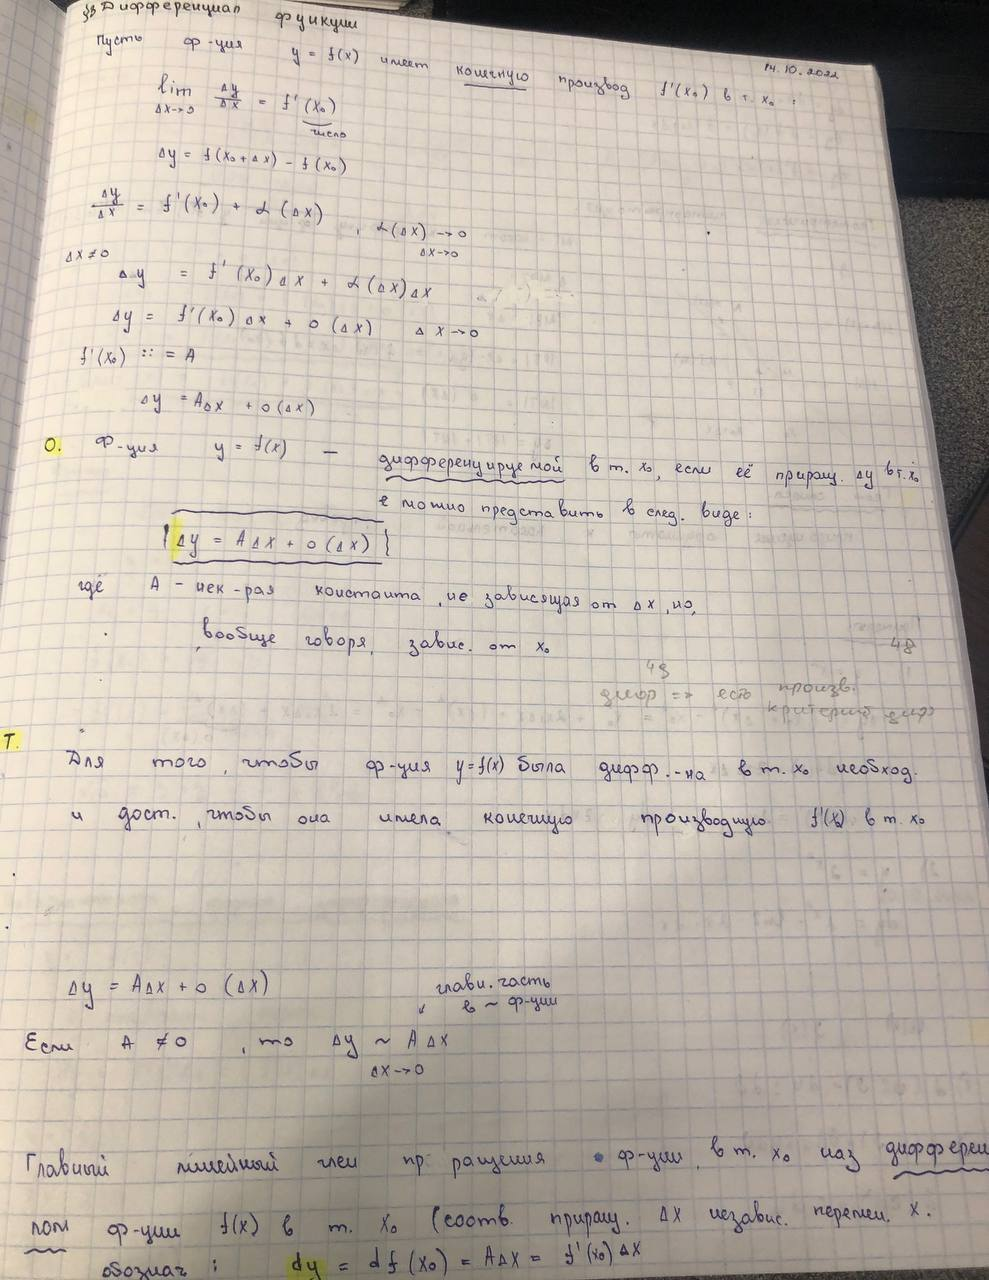 §3 Дифференциал функции
14.10.2022
Пусть ф-ция y = f(x) имеет конечную производ f'(x₀) в т. x₀ :
lim Δy/Δx = f'(x₀)
Δx→0
число
Δy = f(x₀ + Δx) - f(x₀)
Δy/Δx = f'(x₀) + α(Δx) , α(Δx) → 0
Δx→0
Δx ≠ 0
Δy = f'(x₀) Δx + α(Δx)Δx
Δy = f'(x₀) Δx + o(Δx) Δx→0
f'(x₀) :: = A
Δy = AΔx + o(Δx)
О. Ф-ция y = f(x) — дифференцируемой в т. x₀, если её приращ. Δy в т. x₀
можно представить в след. виде:
Δy = AΔx + o(Δx)
где A - нек-рая константа, не зависящая от Δx, но,
вообще говоря, завис. от x₀
48
49
=> есть произв.
критерий
Т.
Для того, чтобы ф-ция y=f(x) была дифф.-на в т. x₀ необход.
и дост., чтобы она имела конечную производную f'(x₀) в т. x₀
Δy = AΔx + o(Δx)
главн. часть
в ~ ф-ции
Если A ≠ 0 , то Δy ~ AΔx
Δx→0
Главный линейный член пр ращения ф-ции в т. x₀ наз дифферен
лом ф-ции f(x) в т. x₀ (соотв. приращ. Δx независ. перемен. x.
обознач: dy = df(x₀) = AΔx = f'(x₀)Δx